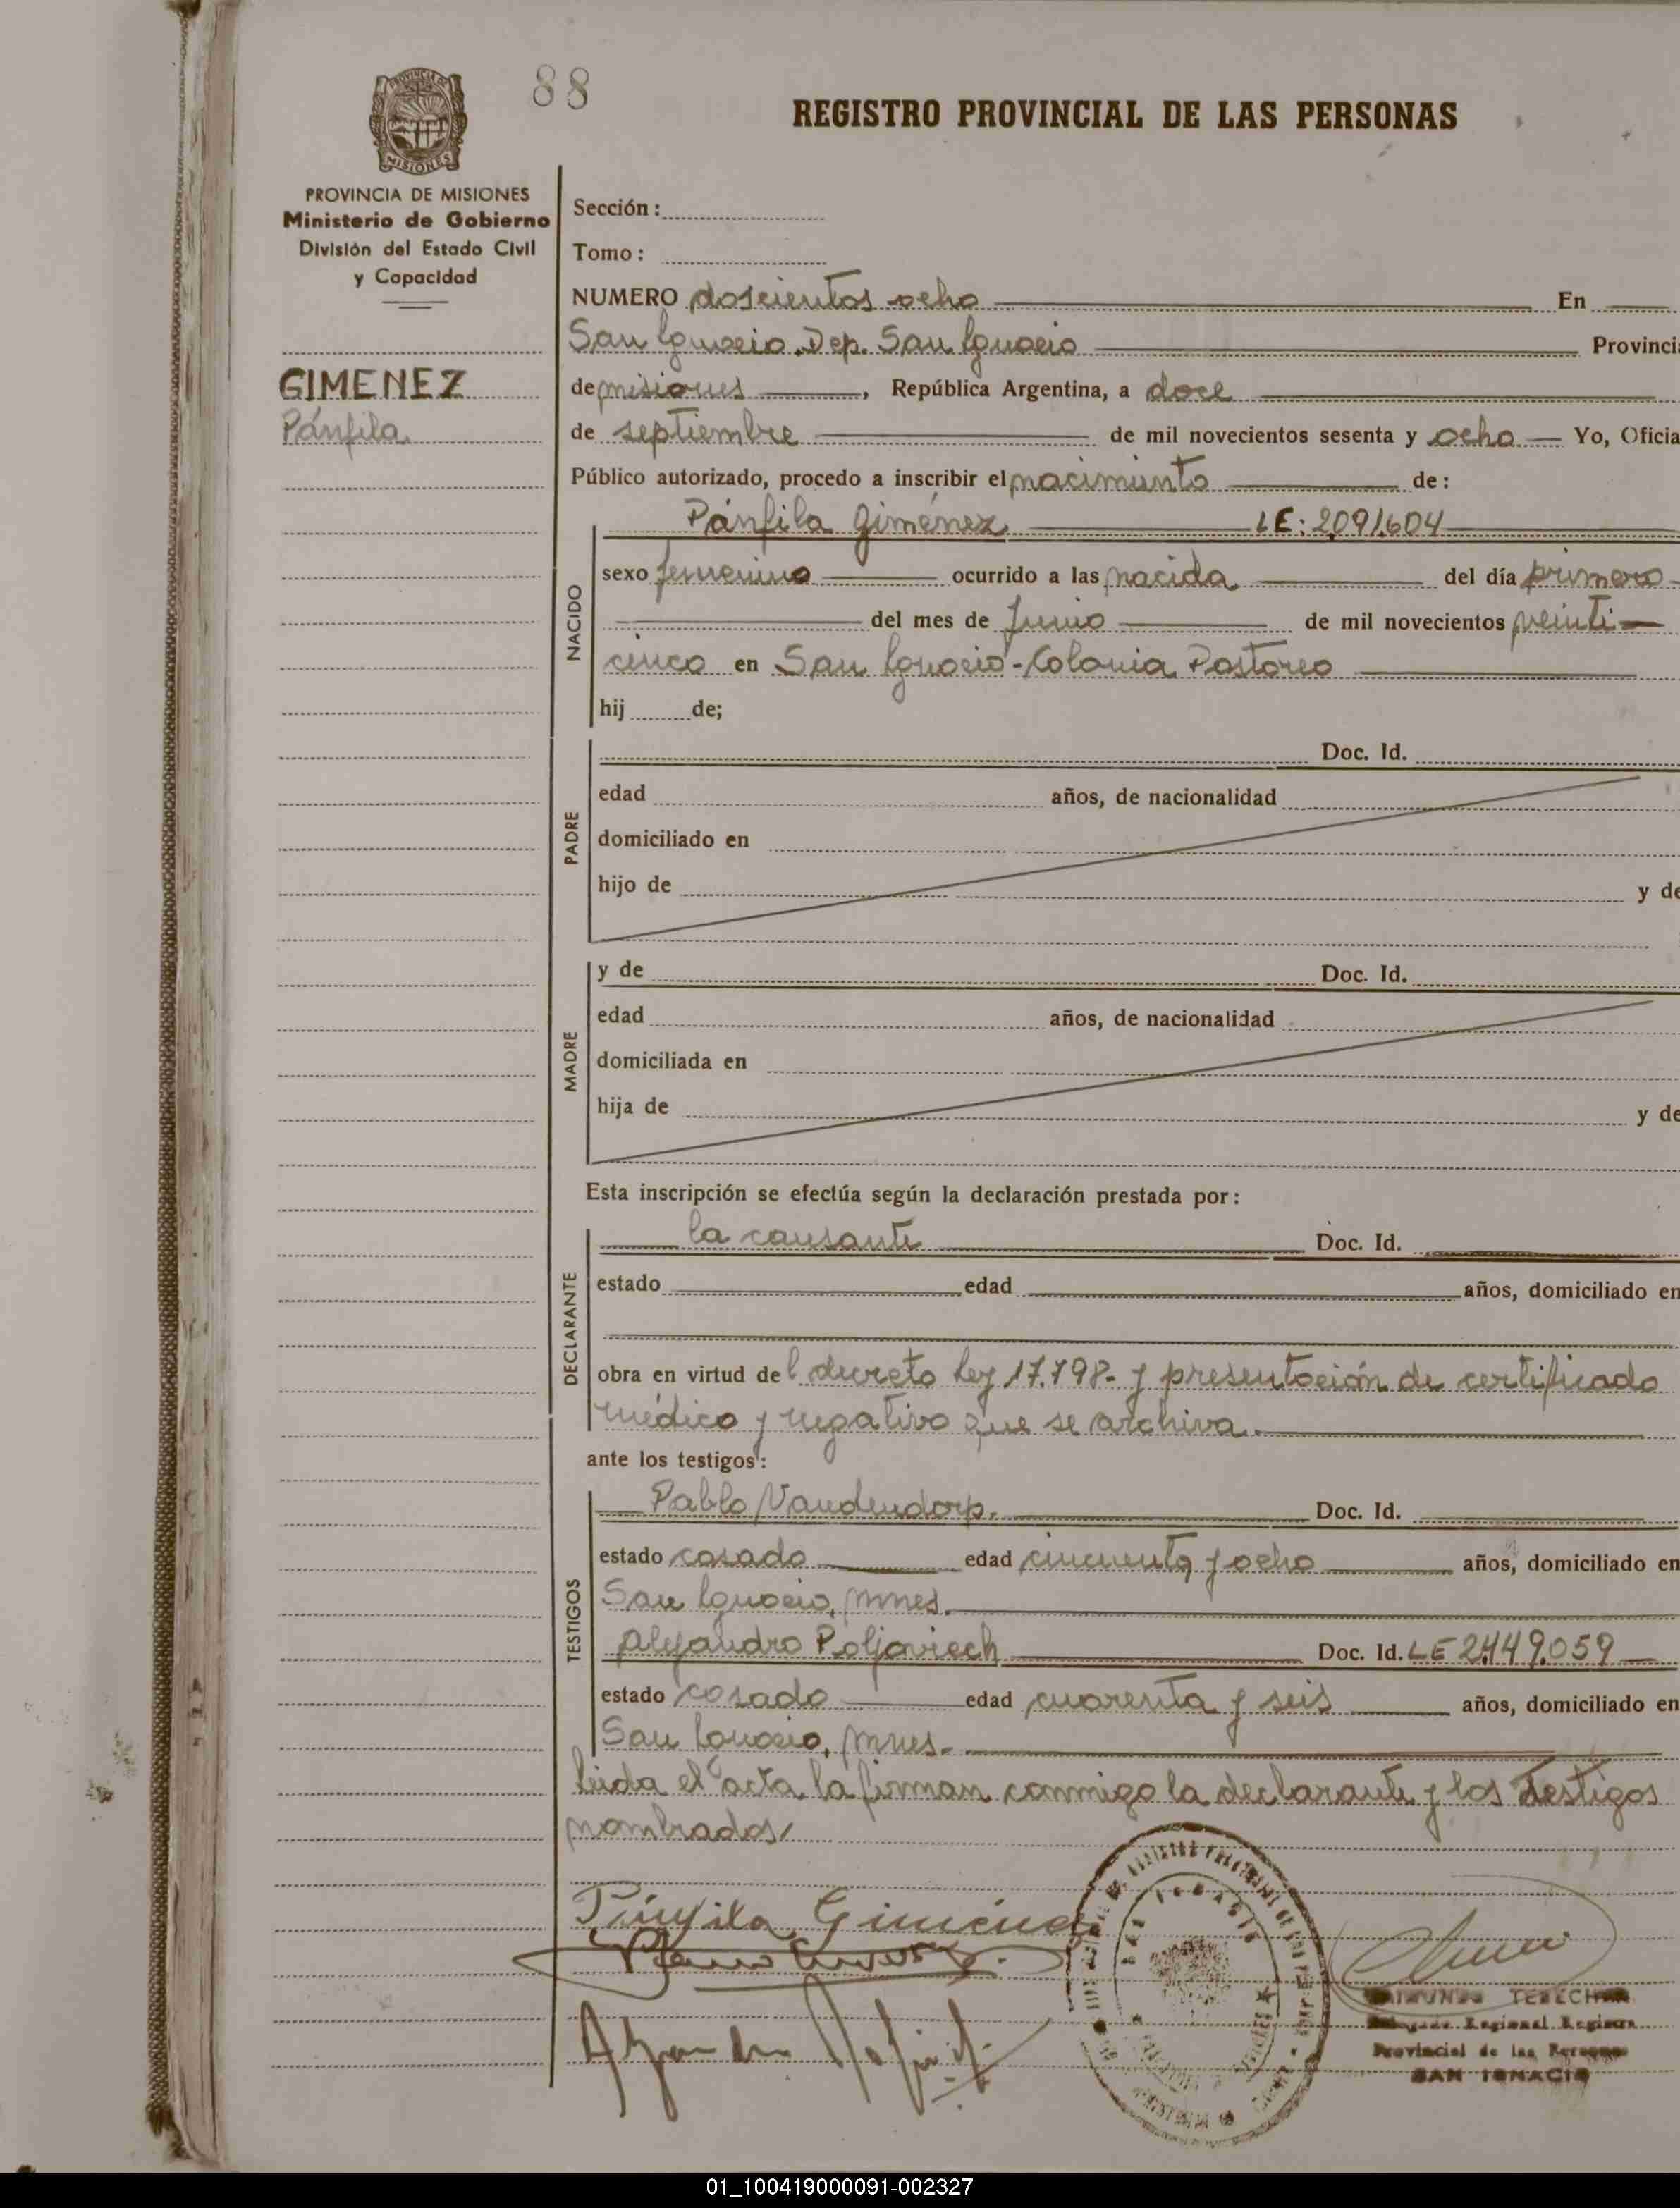 88
REGISTRO PROVINCIAL DE LAS PERSONAS
PROVINCIA DE MISIONES
Ministerio de Gobierno
División del Estado Civil
y Capacidad
GIMENEZ
Pánfila
Sección:
Tomo:
NUMERO doscientos ocho En
San Ignacio. Dep. San Ignacio Provinci
de misiones, República Argentina, a doce
de septiembre de mil novecientos sesenta y ocho Yo, Oficia
Público autorizado, procedo a inscribir el nacimiento de:
Pánfila Giménez LE: 2.091.604
NACIDO
sexo femenino ocurrido a las nacida del día primero
del mes de Junio de mil novecientos veinti-
cinco en San Ignacio - Colonia Pastoreo
hij de;
PADRE
Doc. Id.
edad años, de nacionalidad
domiciliado en
hijo de y de
MADRE
y de Doc. Id.
edad años, de nacionalidad
domiciliada en
hija de y de
Esta inscripción se efectúa según la declaración prestada por:
DECLARANTE
la causante Doc. Id.
estado edad años, domiciliado en
obra en virtud del decreto Ley 17.798- y presentación de certificado
médico y negativo que se archiva.
ante los testigos:
TESTIGOS
Pablo Vandendorp. Doc. Id.
estado casado edad cincuenta y ocho años, domiciliado en
San Ignacio, Mnes.
Alejandro Poljaviech Doc. Id. LE 2449.059
estado casado edad cuarenta y seis años, domiciliado en
San Ignacio, Mnes.
leida el acta la firman conmigo la declarante y los testigos
nombrados
Pánfila Giménez
SAN IGNACIO
TERECHAN
Regional Registro
Provincial de las Personas
SAN IGNACIO
01_100419000091-002327